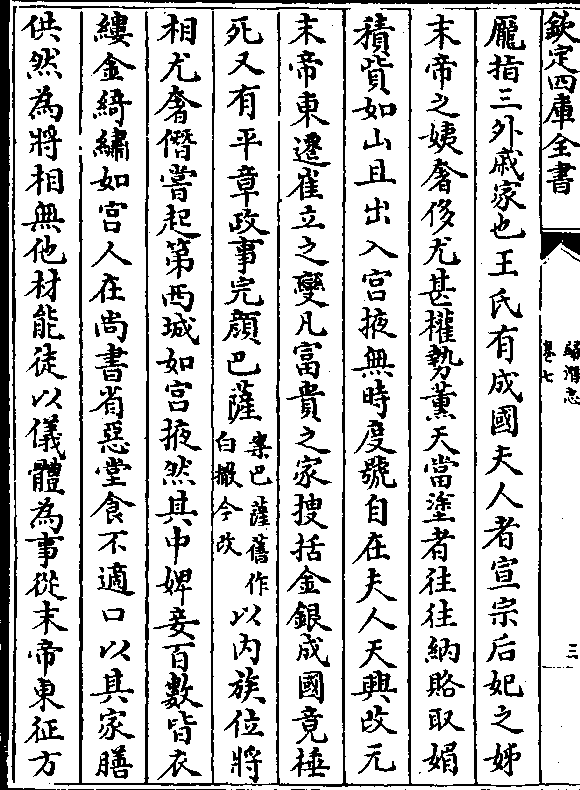 欽定四庫全書
歸潛志
卷七
三
龎指三外戚家也王氏有成國夫人者宣宗后妃之姊
末帝之姨奢侈尤甚權勢薰天當塗者往往納賂取媚
積貲如山且出入宫掖無時度號自在夫人天興改元
末帝東遷崔立之變凡富貴之家搜括金銀成國竟捶
死又有平章政事完顔巴薩案巴薩舊作白撒今改以内族位將
相尤奢僭嘗起第西城如宫掖然其中婢妾百數皆衣
縷金綺繡如宫人在尚書省惡堂食不適口以其家膳
供然為將相無他材能徒以儀體為事從末帝東征方